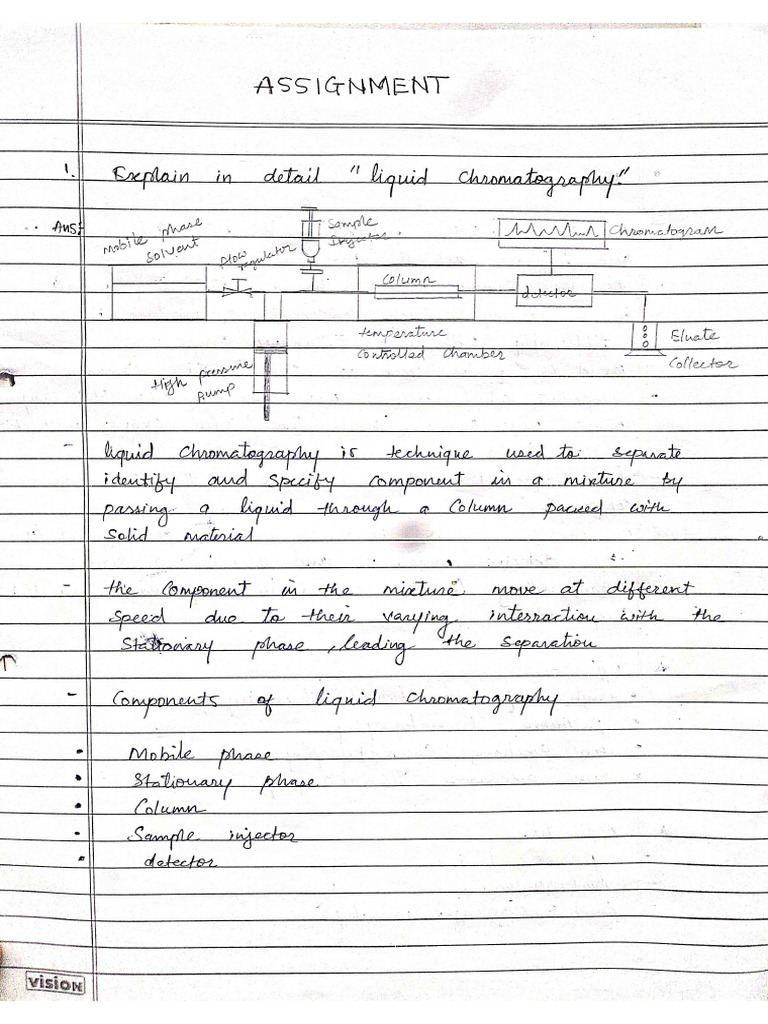 ASSIGNMENT
1. Explain in detail "liquid chromatography."
Ans:
Mobile phase
solvent
flow
regulator
Sample
Injector
Chromatogram
Column
detector
temperature
Controlled Chamber
High pressure
pump
Eluate
Collector
- liquid chromatography is technique used to separate
identify and specify component in a mixture by
passing a liquid through a column packed with
solid material
- the component in the mixture move at different
speed due to their varying interraction with the
stationary phase, leading the separation
- Components of liquid chromatography
• Mobile phase
• Stationary phase.
• Column
• Sample injector
• detector
vision